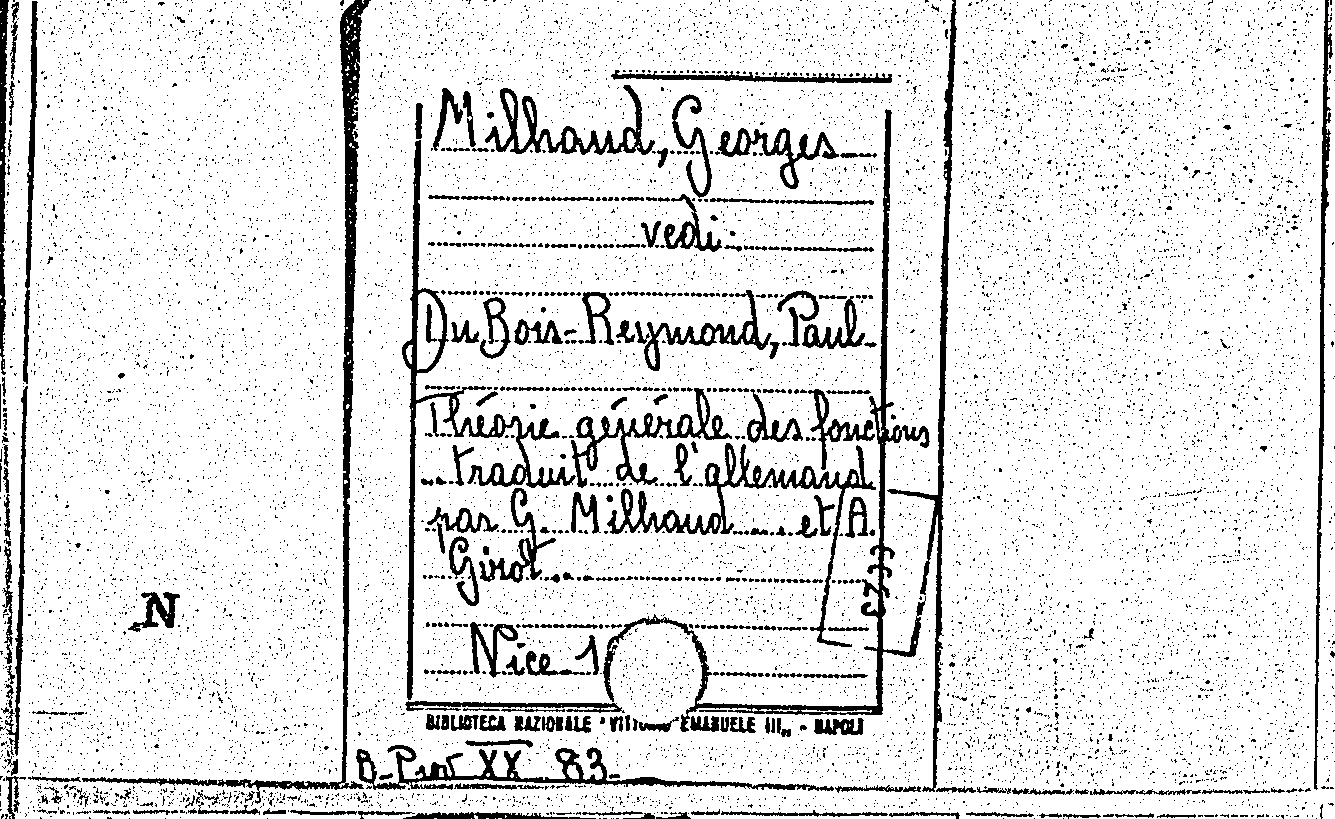 Milhaud, Georges
vedi:
Du Bois-Reymond, Paul
Théorie générale des fonctions
...traduit de l'allemand
par G. Milhaud.... et A.
Girot...
N
Nice 1
BIBLIOTECA NAZIONALE "VITTORIO EMANUELE III„ - NAPOLI
B-Prov XX 83-